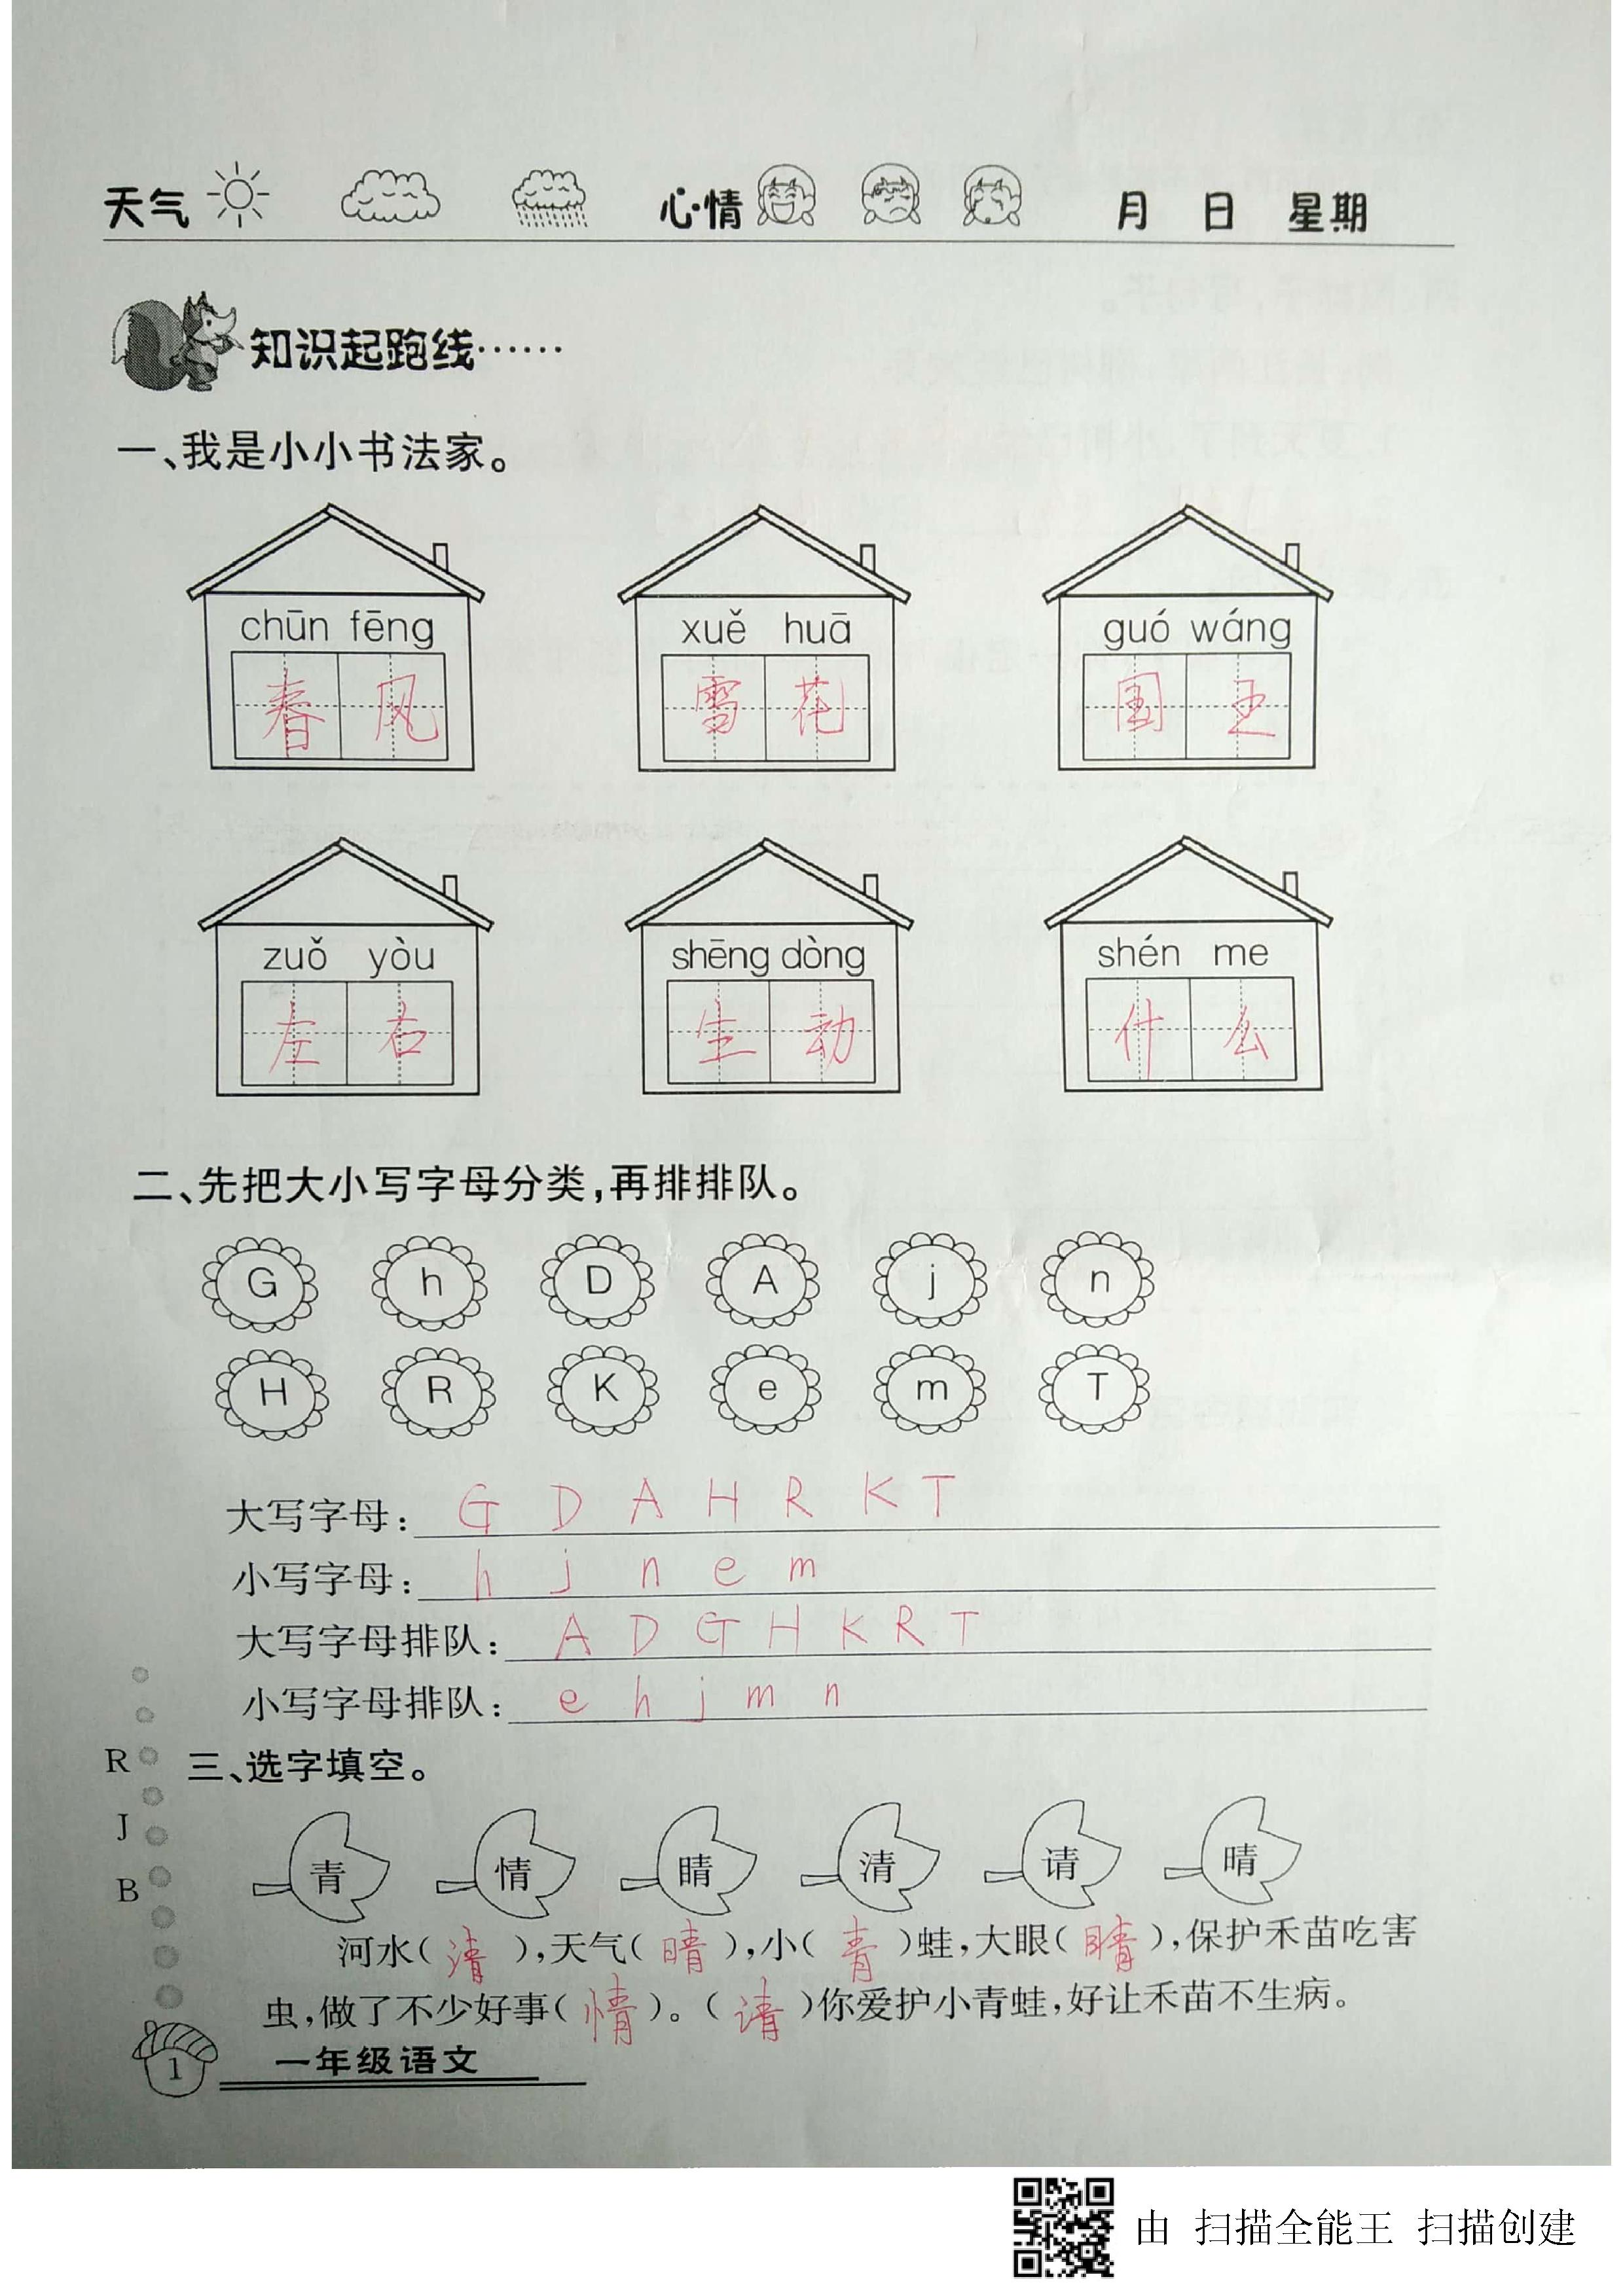 天气 心情 月 日 星期
知识起跑线……
一、我是小小书法家。
chūn fēng xuě huā guó wáng
春风 雪花 国王
zuǒ yòu shēng dòng shén me
左右 生动 什么
二、先把大小写字母分类,再排排队。
G h D A j n
H R K e m T
大写字母: G D A H R K T
小写字母: h j n e m
大写字母排队: A D G H K R T
小写字母排队: e h j m n
R
J
B
三、选字填空。
青 情 睛 清 请 晴
河水(清),天气(晴),小(青)蛙,大眼(睛),保护禾苗吃害
虫,做了不少好事(情)。(请)你爱护小青蛙,好让禾苗不生病。
1 一年级语文
由 扫描全能王 扫描创建